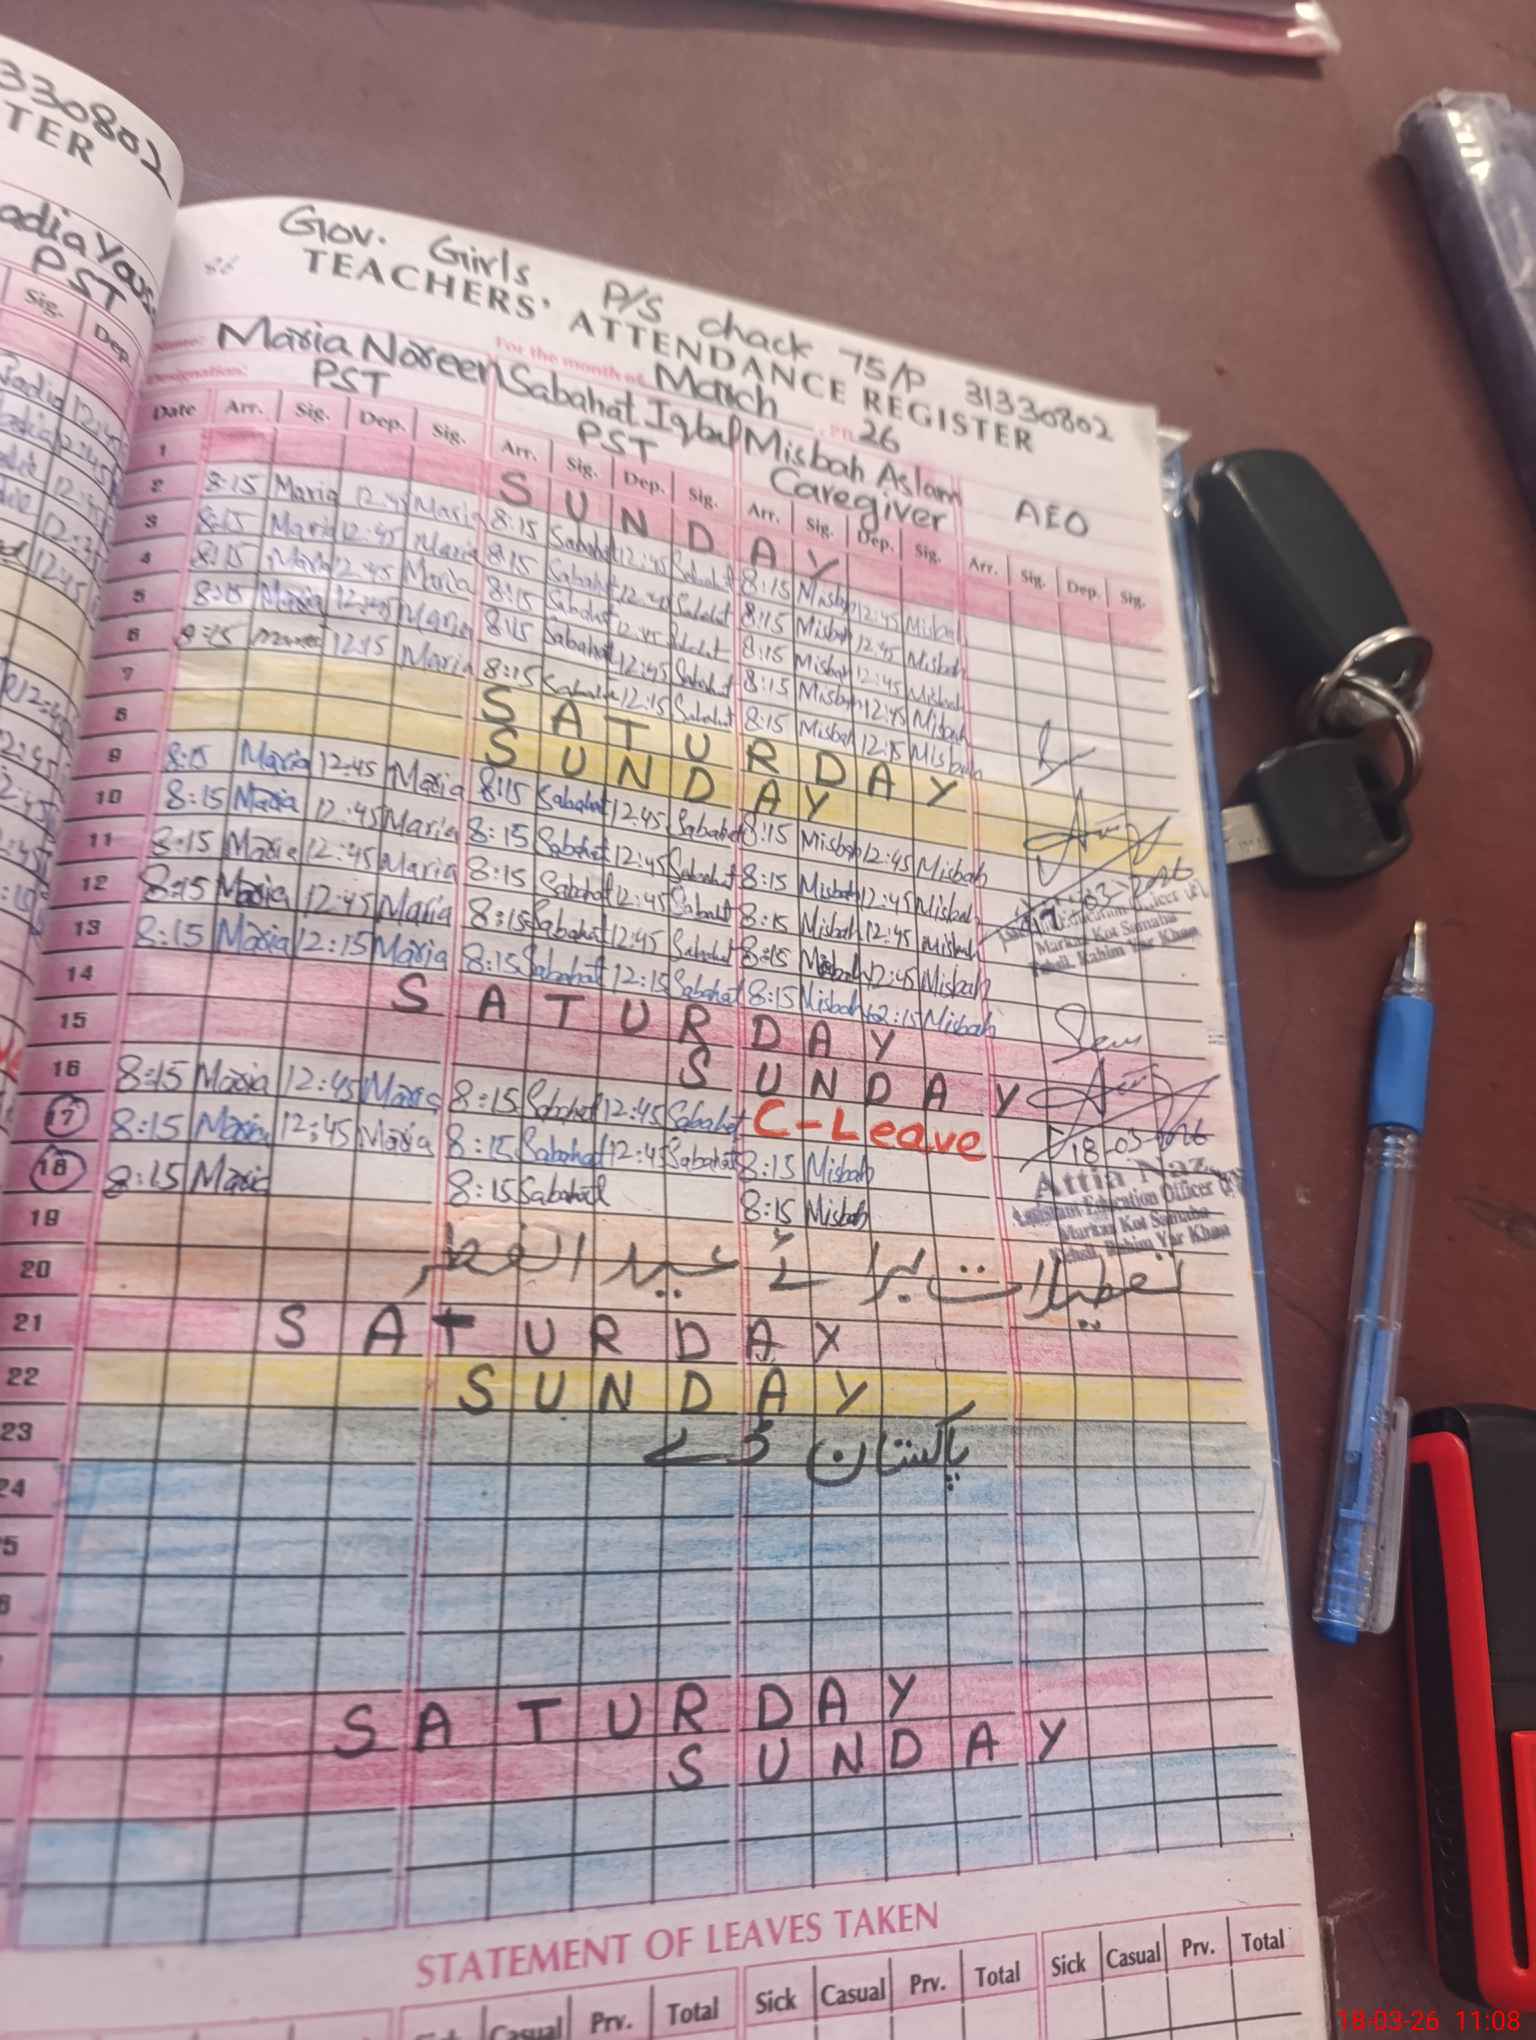 330802
TER
adia Yous
PST
Sig. Dep.
Gov. Girls P/S chack 75/P 31330802
TEACHERS' ATTENDANCE REGISTER
For the month of March 26
Name: Maria Noreen Sabahat Iqbal Misbah Aslam
Designation: PST PST Caregiver AEO
Date Arr. Sig. Dep. Sig. Arr. Sig. Dep. Sig. Arr. Sig. Dep. Sig. Arr. Sig. Dep. Sig.
1 SUNDAY
2 8:15 Maria 12:45 Maria 8:15 Sabahat 12:45 Sabahat 8:15 Misbah 12:45 Misbah
3 8:15 Maria 12:45 Maria 8:15 Sabahat 12:45 Sabahat 8:15 Misbah 12:45 Misbah
4 8:15 Maria 12:45 Maria 8:15 Sabahat 12:45 Sabahat 8:15 Misbah 12:45 Misbah
5 8:15 Maria 12:45 Maria 8:15 Sabahat 12:45 Sabahat 8:15 Misbah 12:45 Misbah
6 8:15 12:15 Maria 8:15 Sabahat 12:15 Sabahat 8:15 Misbah 12:15 Misbah
7 SATURDAY
8 SUNDAY
9 8:15 Maria 12:45 Maria 8:15 Sabahat 12:45 Sabahat 8:15 Misbah 12:45 Misbah
10 8:15 Maria 12:45 Maria 8:15 Sabahat 12:45 Sabahat 8:15 Misbah 12:45 Misbah
11 8:15 Maria 12:45 Maria 8:15 Sabahat 12:45 Sabahat 8:15 Misbah 12:45 Misbah
12 8:15 Maria 12:45 Maria 8:15 Sabahat 12:45 Sabahat 8:15 Misbah 12:45 Misbah
13 8:15 Maria 12:15 Maria 8:15 Sabahat 12:15 Sabahat 8:15 Misbah 12:15 Misbah
17-03-2026
Markaz Kot Samaba
Tehsil, Rahim Yar Khan
14 SATURDAY
15 SUNDAY
16 8:15 Maria 12:45 Maria 8:15 Sabahat 12:45 Sabahat C-Leave
17 8:15 Maria 12:45 Maria 8:15 Sabahat 12:45 Sabahat 8:15 Misbah
18 8:15 Maria 8:15 Sabahat 8:15 Misbah
18-03-2026
Attia Naz
Assistant Education Officer
Markaz Kot Samaba
Tehsil, Rahim Yar Khan
19
20 تعطیلات برائے عید الفطر
21 SATURDAY
22 SUNDAY
23 پاکستان ڈے
24
5
6
SATURDAY
SUNDAY
STATEMENT OF LEAVES TAKEN
Casual Prv. Total Sick Casual Prv. Total Sick Casual Prv. Total
18-03-26 11:08